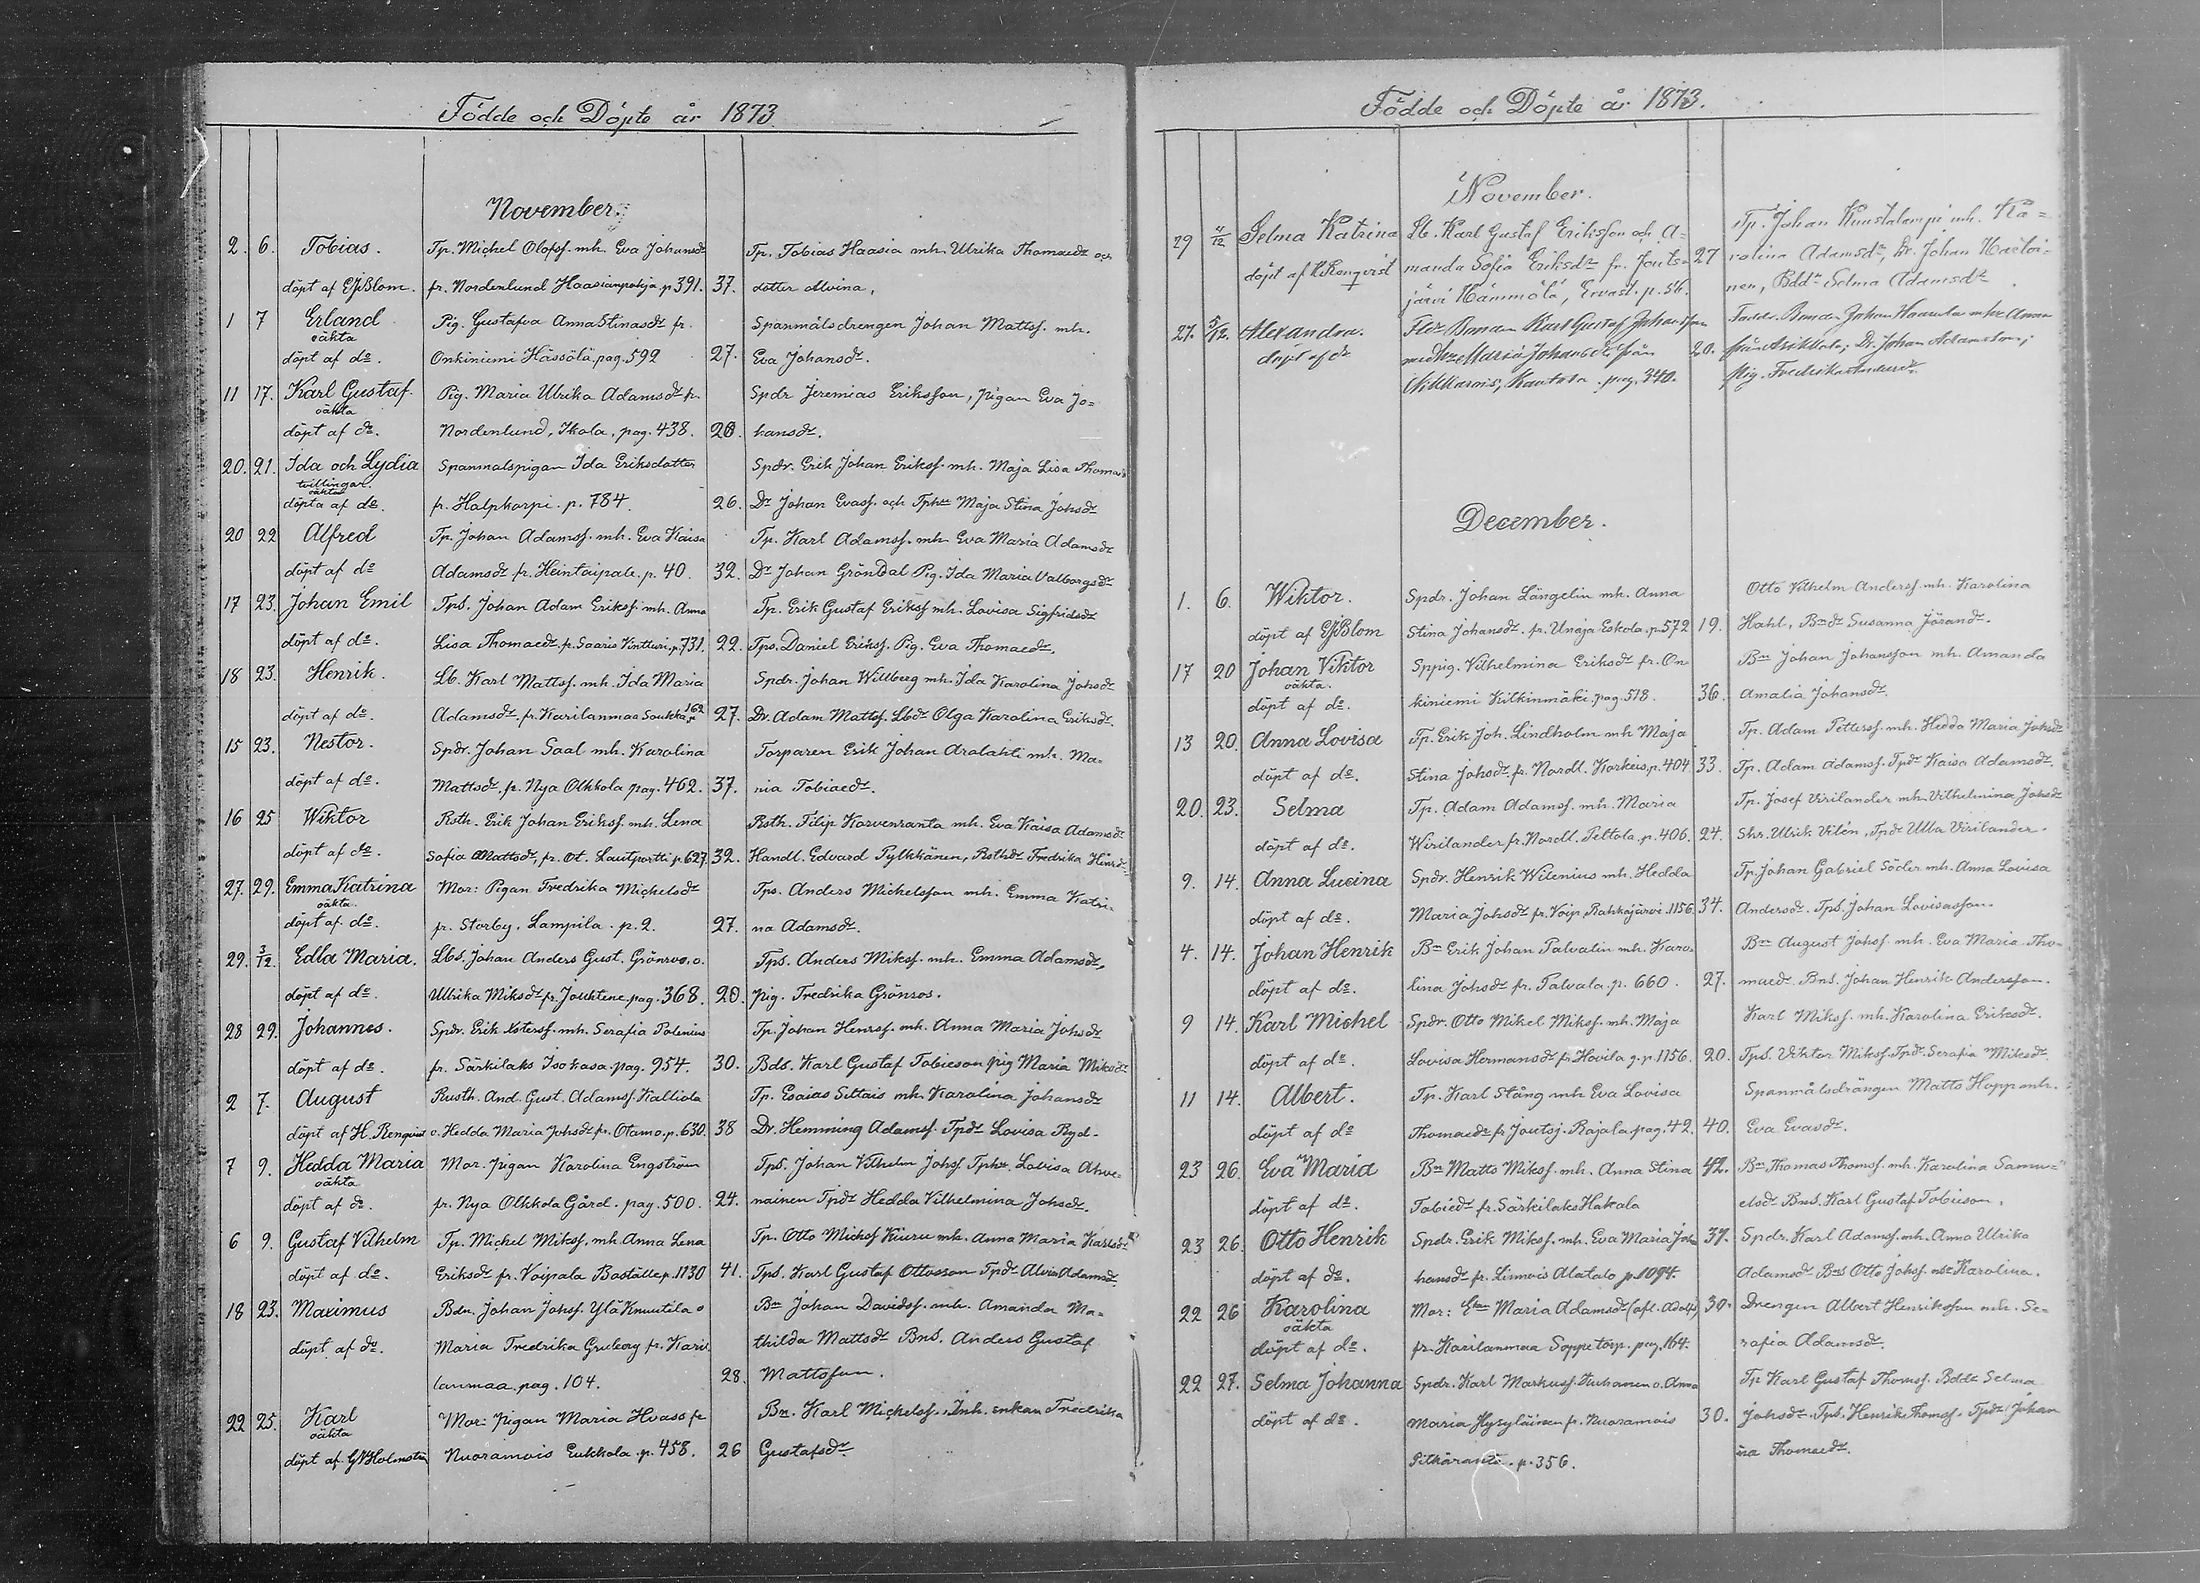 Födde och Döpte år 1873.
November.
2. 6. Tobias. Tp. Michel Olofsf. mh. Eva Johansdr Tp. Tobias Haasia mh. Ulrika Thomaedr och
döpt af EJBlom. fr. Nordenlund Haasianpohja p 391. 37. dotter Alvina.
1 7 Erland Pig. Gustafva Anna Stinasdr fr. Spanmålsdrengen Johan Mattsf. mh.
oäkta
döpt af do. Onkiniemi Hässölä, pag. 592 27. Eva Johansdr.
11 17. Karl Gustaf. Pig. Maria Ulrika Adamsdr fr. Spdr Jeremias Eriksson, pigan Eva Jo=
oäkta
döpt af do. Nordenlund, Ikola, pag. 438. 20. hansdr.
20. 21. Ida och Lydia Spanmalspigan Ida Eriksdotter Spdr. Erik Johan Eriksf. mh. Maja Lisa
tvillingar.
oäkta
döpta af do. fr. Halpkorpi. p. 784. 26. Dr Johan Evasf. och Tphu Maja Stina Johsdr
20 22 Alfred Tp. Johan Adamsf. mh. Eva Kaisa Tp. Karl Adamsf. mh Eva Maria Adamsdr
döpt af do Adamsdr fr. Heintaipale. p. 40. 32. Dr Johan Gröndal Pig. Ida Maria Valborgsdr
17 23. Johan Emil Tps. Johan Adam Eriksf. mh. Anna Tp. Erik Gustaf Eriksf mh. Lovisa Sigfridsdr
döpt af do. Lisa Thomaedr. fr. Saaris Vinttiri, p. 731. 22. Tps. Daniel Eriksf. Pig. Eva Thomaedr.
18 23. Henrik. Lb. Karl Mattsf. mh. Ida Maria Spdr. Johan Willberg mh. Ida Karolina Johsdr
döpt af do. Adamsdr. fr. Karilanmaa Soukka p 162 27. Dr. Adam Mattsf. Lbdr Olga Karolina Eriksdr.
15 23. Nestor. Spdr. Johan Saal mh. Karolina Torparen Erik Johan Aralahti mh. Ma=
döpt af do. Mattsdr. fr. Nya Olkkola pag. 462. 37. ria Tobiaedr.
16 25 Wiktor Rsth. Erik Johan Eriksf. mh. Lena Rsth. Filip Korvenranta mh. Eva Kaisa Adamsdr
döpt af do. Sofia Mattsdr, fr. Ot. Lautportti p. 627 32. Handl. Edvard Pylkkänen, Rsthdr Fredrika Hinrsdr
27. 29. Emma Katrina Mor: Pigan Fredrika Michelsdr Tps. Anders Michelsson mh. Emma Katri-
oäkta.
döpt af do. fr. Storby, Lampila. p. 2. 27. na Adamsdr.
29. 3/12. Edla Maria. Lbs. Johan Anders Gust. Grönroo, o. Tps. Anders Miksf. mh. Emma Adamsdr,
döpt af do. Ulrika Miksdr fr. Jouktene. pag. 368. 20. pig. Fredrika Grönros.
28 29. Johannes. Spdr. Erik mh. Serafia Polenius Tp. Johan Henrsf. mh. Anna Maria Johsdr
döpt af do. fr. Särkilaks Isokasa. pag. 954. 30. Bds. Karl Gustaf Tobieson pig Maria Miksdr
2 7. August Rusth. And. Gust. Adamsf. Kalliola Tp. Esaias Siltais mh. Karolina Johansdr
döpt af H. Renqvist o. Hedda Maria Johsdr fr. Otamo. p. 630. 38 Dr. Hemming Adamsf. Tpdr Lovisa Ryd-
7 9. Hedda Maria Mor. pigan Karolina Engström Tps. Johan Vilhelm Johsf. Tphu. Lovisa Ahve-
oäkta
döpt af do. fr. Nya Olkkola Gård. pag. 500. 24. nainen Tpdr Hedda Vilhelmina Johsdr.
6 9. Gustaf Vilhelm Tp. Michel Miksf. mh. Anna Lena Tp. Otto Michsf Kiuru mh. Anna Maria Karlsdr
döpt af do. Eriksdr fr. Voipala Boställe p. 1130 41. Tps. Karl Gustaf Ottosson Tpdr Alvin Adamsdr.
18 23. Maximus Bdn. Johan Johsf. Ylä Knuutila o Bn Johan Davidsf. mh. Amanda Ma=
döpt af do. Maria Fredrika Gruborg fr. Kari thilda Mattsdr Bns. Anders Gustaf
lanmaa. pag. 104. 28. Mattsson.
22 25. Karl Mor: pigan Maria Hvass fr Bn. Karl Michelsf., Inh. enkan Fredrika
oäkta
döpt af GWHolmstén Nuoramois Eukkola. p. 458. 26 Gustafsdr
Födde och Döpte år 1873.
November.
29 4/12 Selma Katrina Lb. Karl Gustaf Eriksson och A= Tp. Johan Kuustalampi mh. Ka=
döpt af H Renqvist manda Sofia Eriksdr fr. Jouts= 27 rolina Adamsdr, Dr. Johan
järvi Hämmölä, Ervast. p. 56. nen, Bddr Selma Adamsdr
27. 5/12. Alexandra. Bonden Karl Gustaf Johansson Fadd. Bonden Johan Haamla mhu Anna
döpt af do med hu Maria Johansdr från 20. från Asikkala; Dr. Johan Adamsson;
Nikkarois, Kautola. pag. 340. Pig. Fredrika
December.
1. 6. Wiktor. Spdr. Johan Längelin mh. Anna Otto Vilhelm Andersf. mh. Karolina
döpt af EJBlom Stina Johansdr. fr. Unaja Eskola. p. 572 19. Hahl, Bmdr Susanna Jörandr.
17 20 Johan Viktor Sppig. Vilhelmina Eriksdr fr. On Bn Johan Johansson mh. Amanda
oäkta.
döpt af do. kiniemi Kilkinmäki. pag. 518. 36. Amalia Johansdr.
13 20. Anna Lovisa Tp. Erik Joh. Lindholm mh Maja Tp. Adam Pettersf. mh. Hedda Maria Johsdr
döpt af do. Stina Johsdr. fr. Nordl. Korkeis, p. 404 33. Tp. Adam Adamsf. Tpdr Kaisa Adamsdr.
20. 23. Selma Tp. Adam Adamsf. mh. Maria Tp. Josef Virilander mh. Vilhelmina Johsdr
döpt af do. Wirilander fr. Nordl. Peltola. p. 406. 24. Shr. Ulrik Vilén, Tpdr Ulla Virilander.
9. 14. Anna Lucina Spdr. Henrik Witenius mh. Hedda Tp. Johan Gabriel Söder mh. Anna Lovisa
döpt af do. Maria Johsdr fr. Voip. Rahkajärvi. 1156. 34. Andersdr. Tps. Johan Lovisasson.
4. 14. Johan Henrik Bn Erik Johan Palvalin mh. Karo= Bn August Johsf. mh. Eva Maria Tho=
döpt af do. lina Johsdr fr. Palvala. p. 660. 27. maedr. Bns. Johan Henrik Andersson.
9 14. Karl Michel Spdr. Otto Mikel Miksf. mh. Maja Karl Miksf. mh. Karolina Eriksdr.
döpt af do. Lovisa Hermansdr fr Hovila g. p. 1156. 20. Tps. Viktor Miksf. Tpdr. Serafia Miksdr.
11 14. Albert. Tp. Karl Stång mh Eva Lovisa Spanmålsdrängen Matts Hopp mh.
döpt af do Thomaedr fr Joutsj. Rajala. pag. 42. 40. Eva Evasdr.
23 26. Eva Maria Bn Matts Miksf. mh. Anna Stina 42. Bn Thomas Thomsf. mh. Karolina Samu=
döpt af do. Tobiedr. fr. Särkilaks Hakala elsdr Bns. Karl Gustaf Tobieson.
23 26. Otto Henrik Spdr. Erik Miksf. mh. Eva Maria Jo 37. Spdr. Karl Adamsf. mh. Anna Ulrika
döpt af do. hansdr fr. Linnois Alatalo p. 1094. Adamsdr Bns Otto Johsf. Karolina.
22 26 Karolina Mor: Ekan Maria Adamsdr (afl. Adolf) 30. Drengen Albert Henriksson mh. Se=
oäkta
döpt af do. fr. Karilanmaa Soppe torp. pag. 164. rafia Adamsdr.
22 27. Selma Johanna Spdr. Karl Markusf. Huhanen o. Anna Tp Karl Gustaf Thomsf. Bddr Selma
döpt af do. Maria Hyryläinen fr. Nuoramois 30. Johsdr. Tps. Henrik Thomsf. Tpdr Johan
Pitkäranta. p. 356. na Thomaedr.